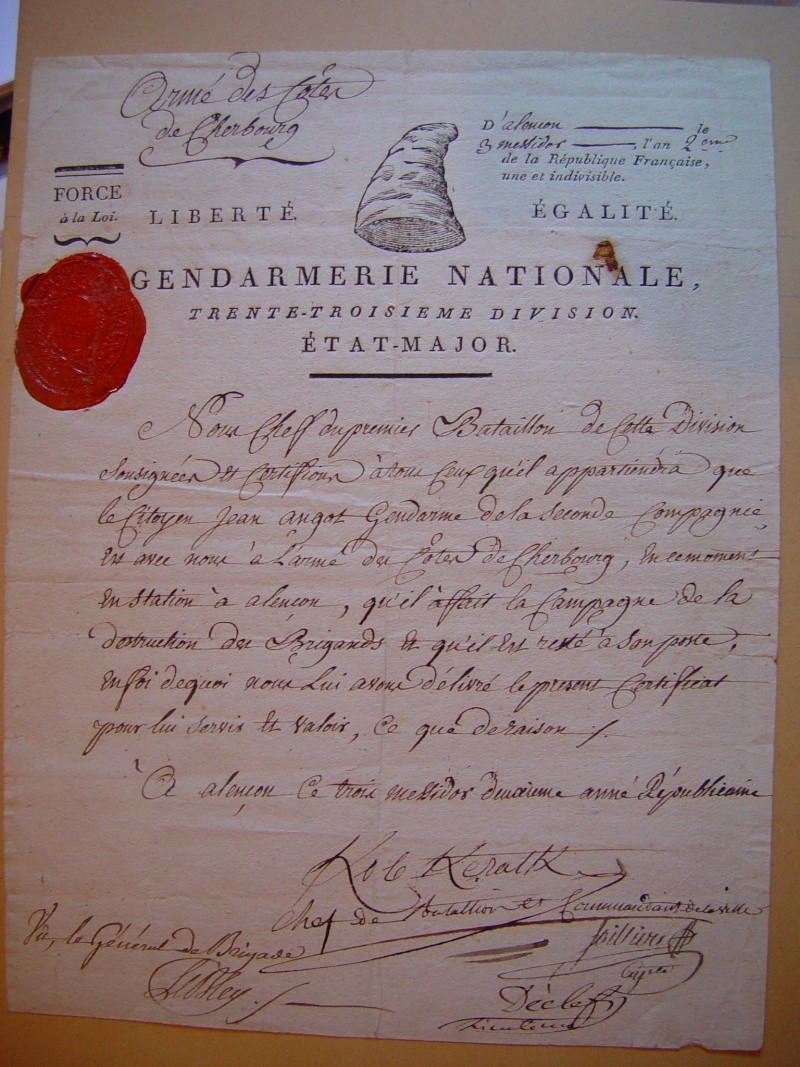 Armé des Côtes
de Cherbourg
D'alençon le
3 messidor l'an 2 eme
de la République Française,
une et indivisible.
FORCE
à la Loi.
LIBERTÉ.
ÉGALITÉ.
GENDARMERIE NATIONALE,
TRENTE-TROISIEME DIVISION.
ÉTAT-MAJOR.
Nous Cheff du premier Bataillon de Cette Division
Soussignées et Certifions à tous Ceux qu'il appartiendra que
le Citoyen Jean angot Gendarme de la Seconde Compagnie
Est avec nous à L'armé des Côtes de Cherbourg, En ce moment
En Station à alençon, qu'il affait la Campagne de la
destruction des Brigands Et qu'il Est resté à Son poste,
En foi de quoi nous Lui avons délivré le present Certificat
pour lui servir Et valoir, Ce que de raison /.
A alençon Ce trois messidor deuxieme anné Républicaine
Chef de Batallion et Commandant de la ville
Vu, le Général de Brigade
Lieutenant